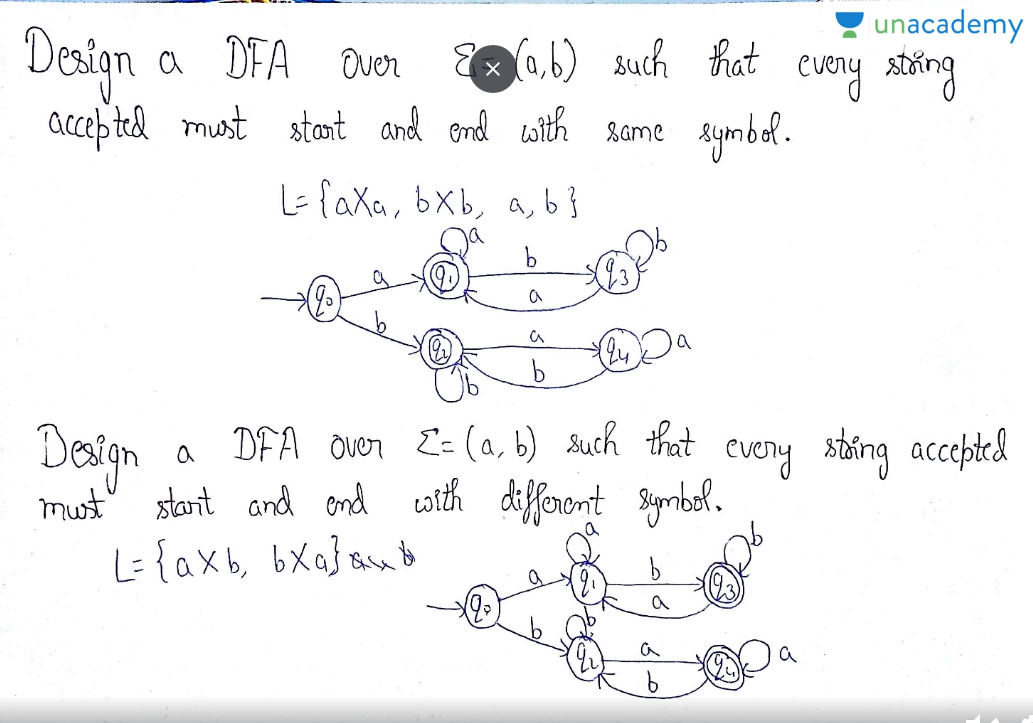 unacademy
Design a DFA over Σ= (a,b) such that every string
accepted must start and end with same symbol.
L= {aXa, bXb, a, b}
a b
q0 a q1 b q3
a
b q2 a q4 a
b
b
Design a DFA over Σ= (a, b) such that every string accepted
must start and end with different symbol.
L= {aXb, bXa}
a b
q0 a q1 b q3
a
b b
q2 a q4 a
b